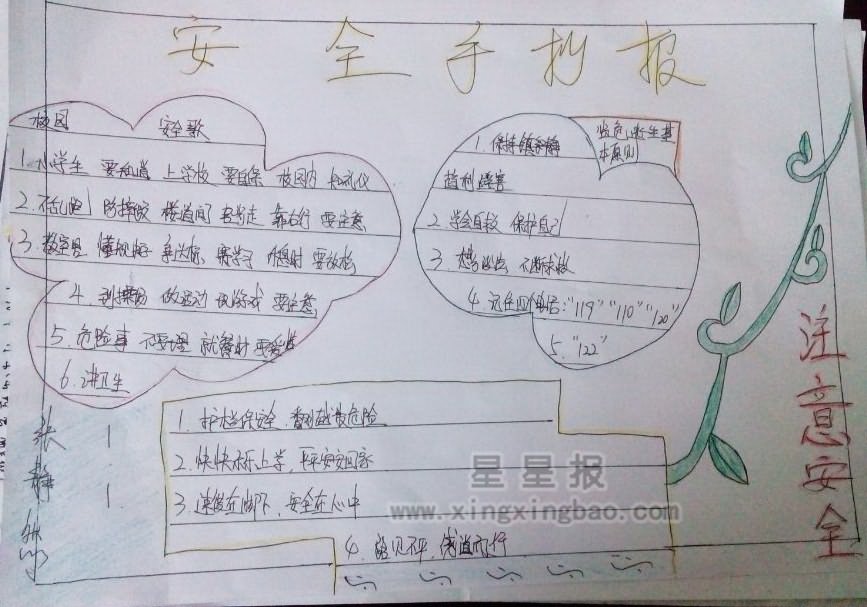 安全手抄报
校园 安全歌
1.小学生 要知道 上学校 要自保 校园内 知礼仪
2.不乱跑 防摔跤 楼道间 慢步走 靠右行 要注意
3.教室里 懂规矩 争达标 赛学习 休息时 要放松
4.到操场 做运动 玩游戏 要注意
5.危险事 不要理 就餐时
6.讲卫生
1.保持镇静
趋利避害
2.学会自救 保护自己
3.想方设法 不断求救
4.记住四个电话:"119""110""120"
5."122"
1.护栏保安全,翻越最危险
2.快快乐乐上学,平平安安回家
3.速度在脚下,安全在心中
4.路见不平,绕道而行
注意安全
张静
星星报
www.xingxingbao.com